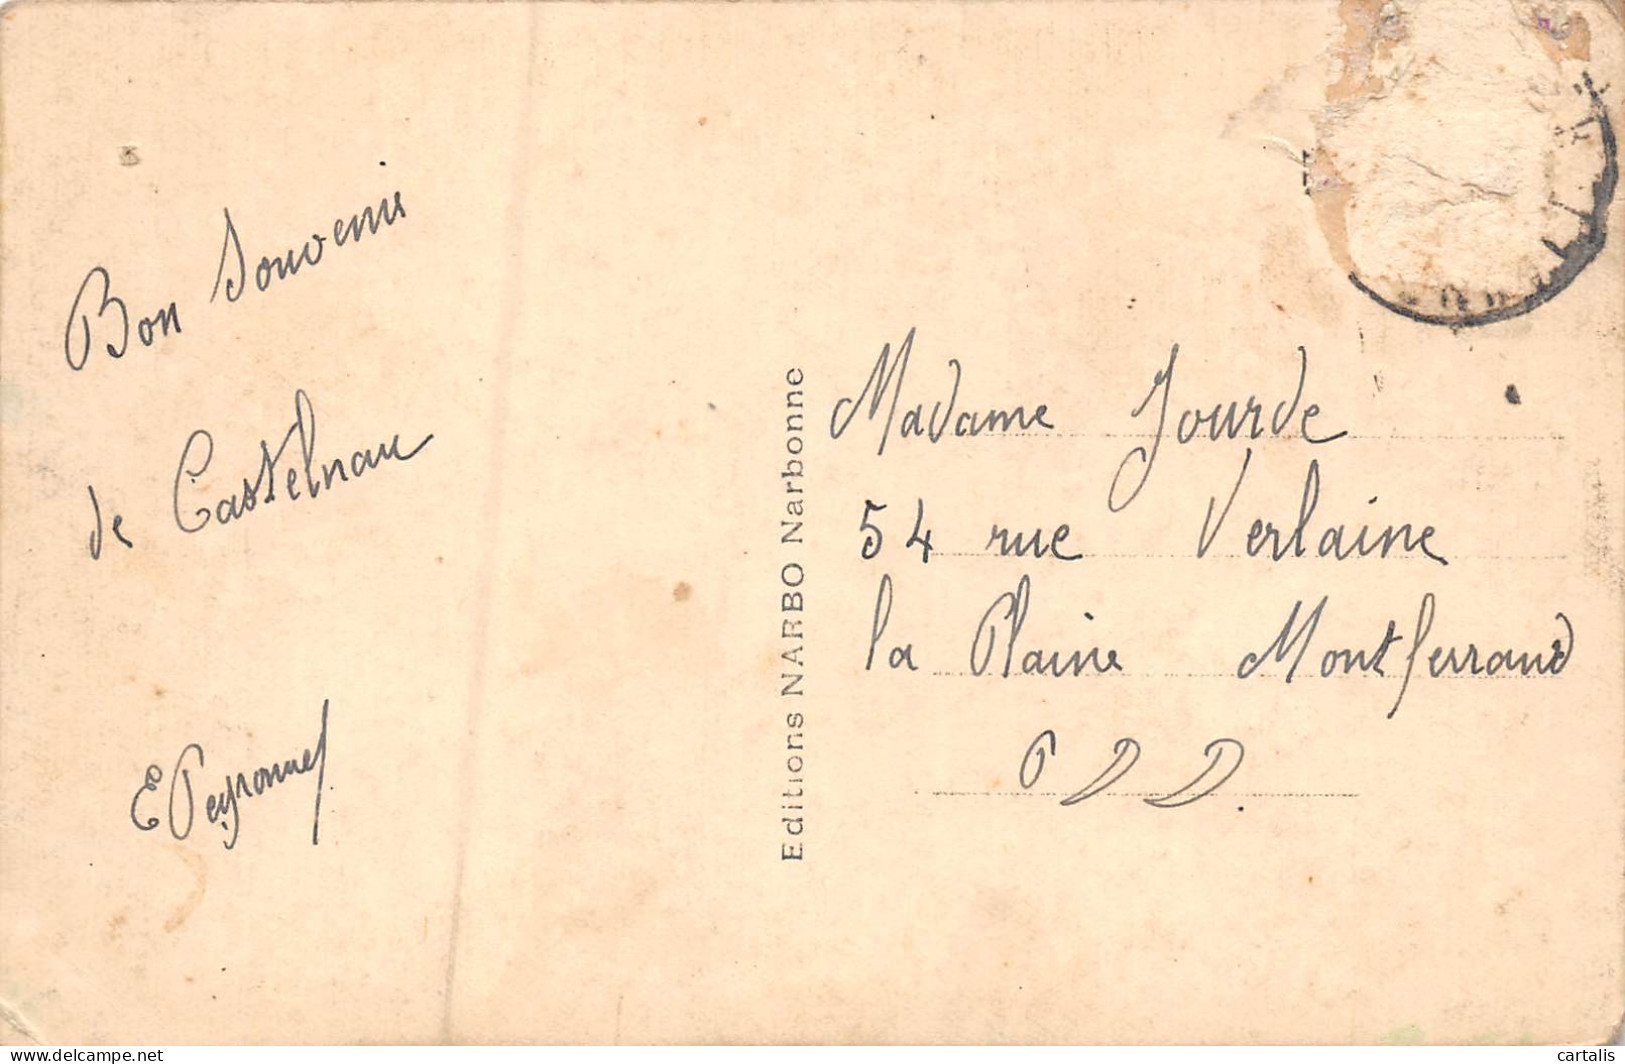 Bon Souvenir
de Castelnau
E Peyronnet
Editions NARBO Narbonne
Madame Jourde
54 rue Verlaine
la Plaine Montferrand
P D D.
delcampe.net
cartalis